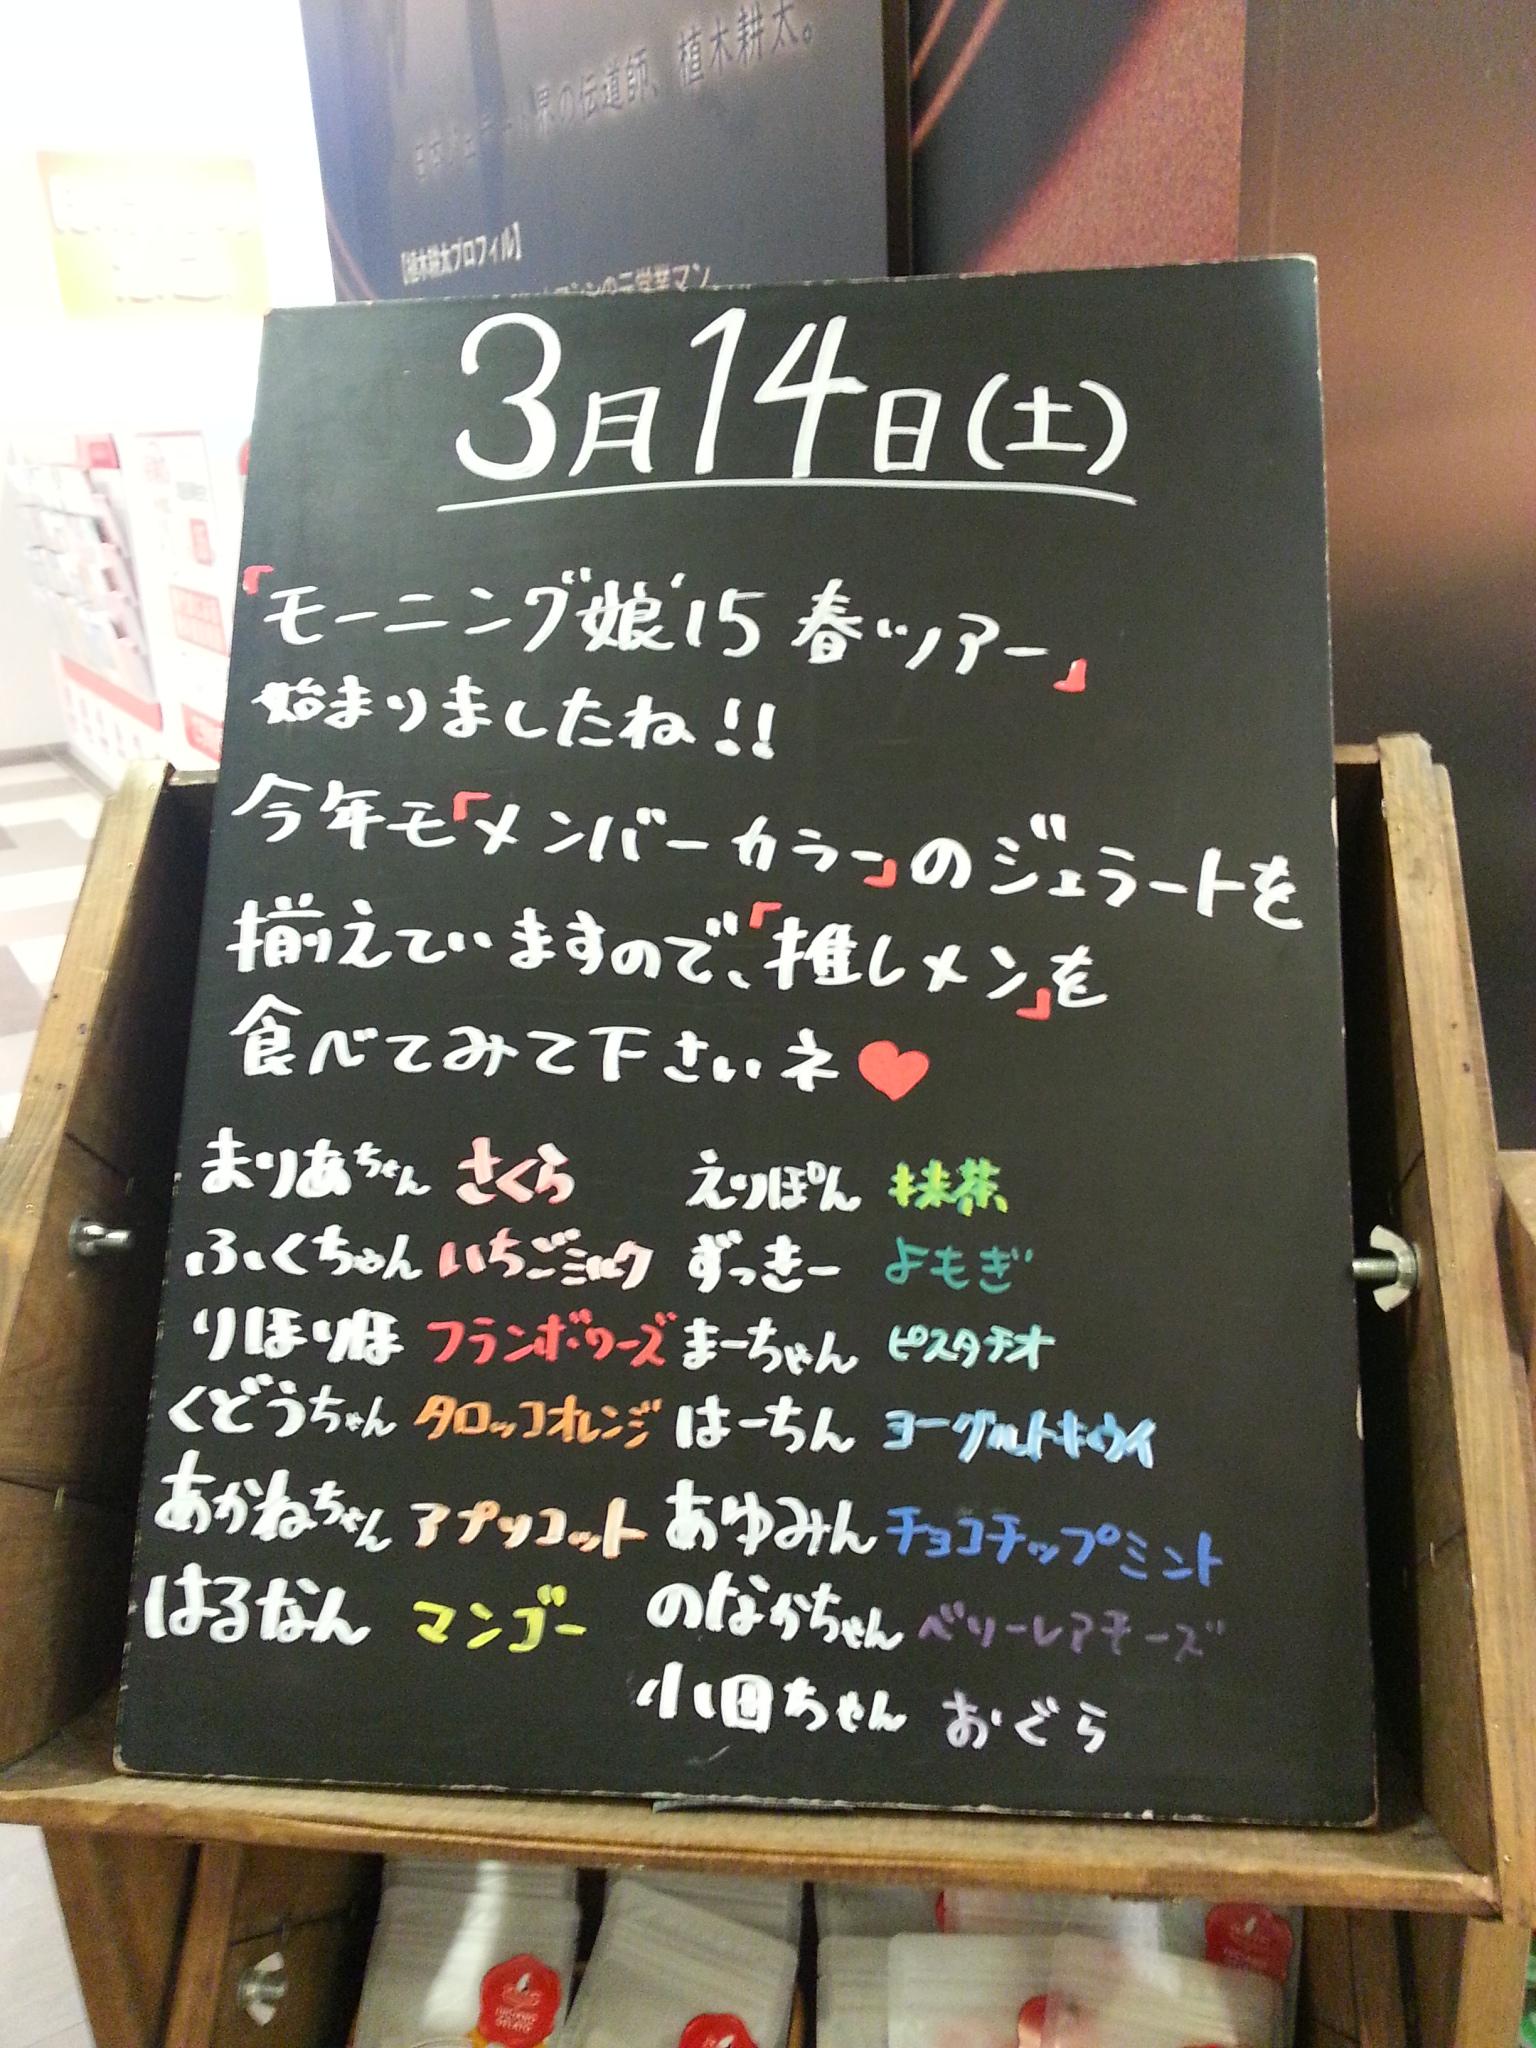 界の伝道師、植木耕太。
【植木耕太プロフィル】
の元営業マン。
3月14日(土)
「モーニング娘'15 春ツアー」
始まりましたね!!
今年モ「メンバーカラー」のジェラートを
揃えていますので、「推しメン」を
食べてみて下さいネ♥
まりあちゃん さくら えりぽん 抹茶
ふくちゃん いちごミルク ずっきー よもぎ
りほりほ フランボワーズ まーちゃん ピスタチオ
くどうちゃん タロッコオレンジ はーちん ヨーグルトキウイ
あかねちゃん アプリコット あゆみん チョコチップミント
はるなん マンゴー のなかちゃん ベリーレアチーズ
小田ちゃん おぐら